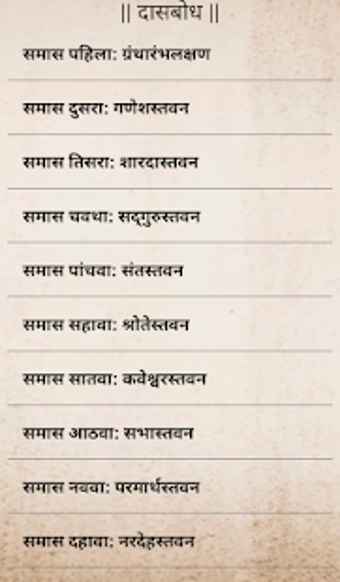 || दासबोध ||
समास पहिला: ग्रंथारंभलक्षण
समास दुसरा: गणेशस्तवन
समास तिसरा: शारदास्तवन
समास चवथा: सद्गुरुस्तवन
समास पांचवा: संतस्तवन
समास सहावा: श्रोतेस्तवन
समास सातवा: कवेश्वरस्तवन
समास आठवा: सभास्तवन
समास नववा: परमार्थस्तवन
समास दहावा: नरदेहस्तवन